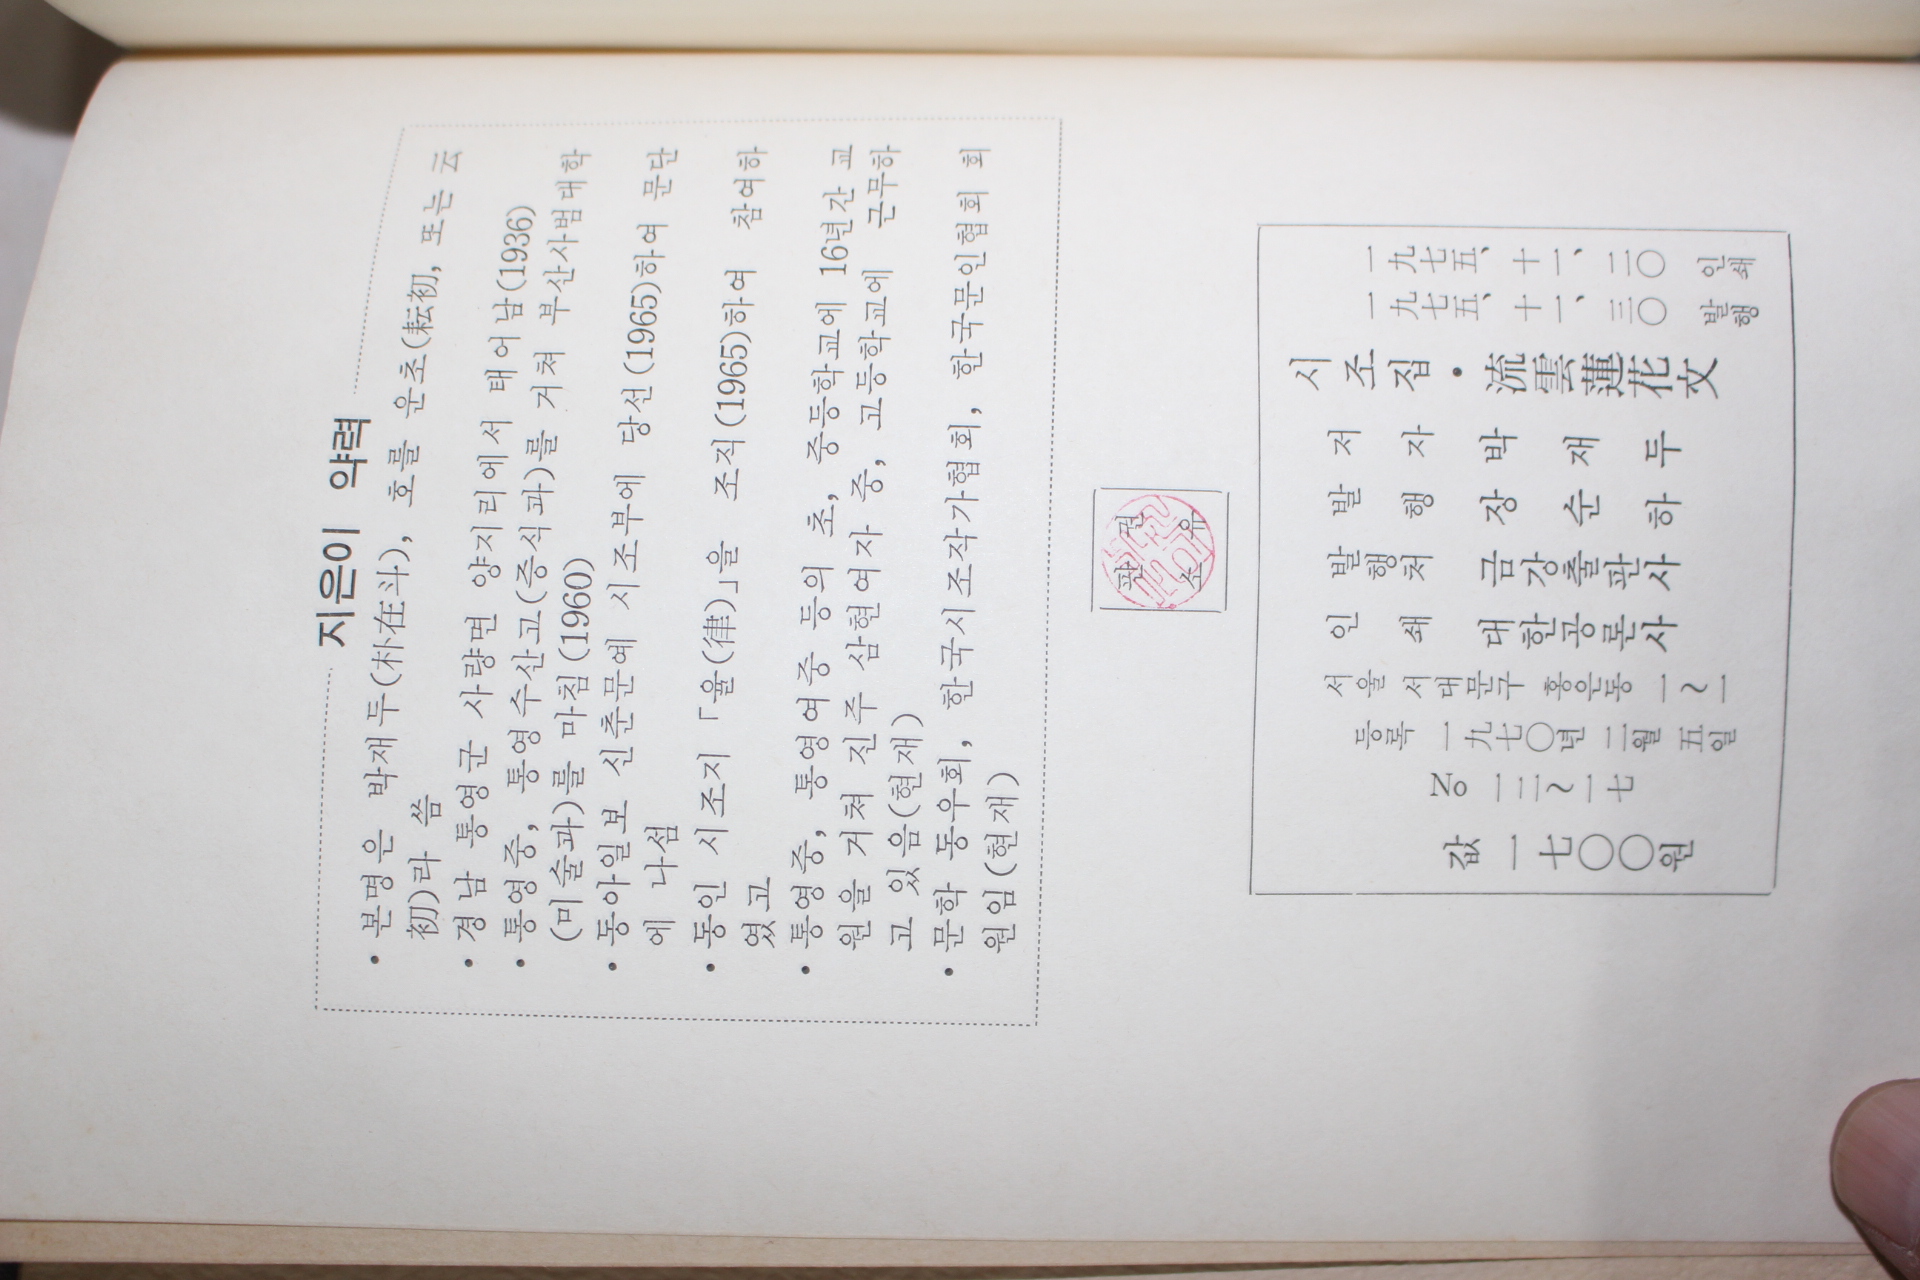 지은이 약력
• 본명은 박재두(朴在斗), 호를 운초(耘初, 또는 云
初)라 씀
• 경남 통영군 사량면 양지리에서 태어남(1936)
• 통영중, 통영수산고(증식과)를 거쳐 부산사범대학
(미술과)를 마침(1960)
• 동아일보 신춘문예 시조부에 당선(1965)하여 문단
에 나섬
• 동인 시조지 「율(律)」을 조직(1965)하여 참여하
였고
• 통영중, 통영여중 등의 초, 중등학교에 16년간 교
원을 거쳐 진주 삼현여자 중, 고등학교에 근무하
고 있음(현재)
• 문학 동우회, 한국시조작가협회, 한국문인협회 회
원임(현재)
판권
소유
一九七五、十一、二〇 인쇄
一九七五、十一、三〇 발행
시조집・流雲蓮花文
저자 박재두
발행 장순하
발행처 금강출판사
인쇄 대한공론사
서울 서대문구 홍은동 一~一
등록 一九七〇년 二월 五일
No 一二~一七
값 一七〇〇원